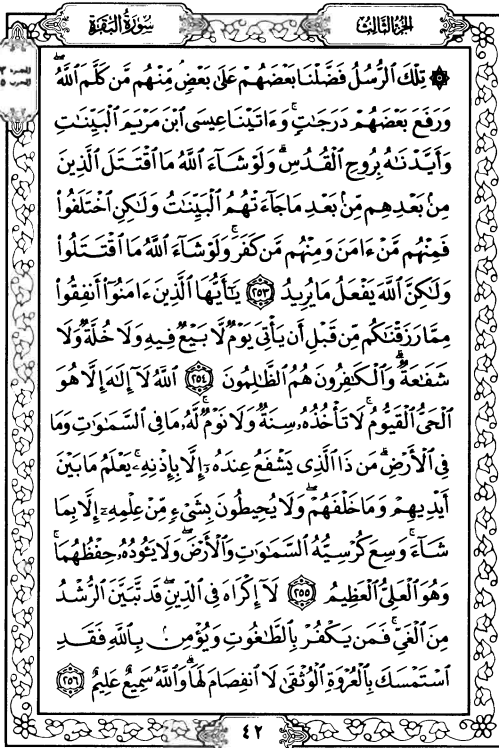 الجزء الثالث
سورة البقرة
۞ تِلْكَ ٱلرُّسُلُ فَضَّلْنَا بَعْضَهُمْ عَلَىٰ بَعْضٍ مِّنْهُم مَّن كَلَّمَ ٱللَّهُ
وَرَفَعَ بَعْضَهُمْ دَرَجَٰتٍ وَءَاتَيْنَا عِيسَى ٱبْنَ مَرْيَمَ ٱلْبَيِّنَٰتِ
وَأَيَّدْنَٰهُ بِرُوحِ ٱلْقُدُسِ وَلَوْ شَآءَ ٱللَّهُ مَا ٱقْتَتَلَ ٱلَّذِينَ
مِنۢ بَعْدِهِم مِّنۢ بَعْدِ مَا جَآءَتْهُمُ ٱلْبَيِّنَٰتُ وَلَٰكِنِ ٱخْتَلَفُوا۟
فَمِنْهُم مَّنْ ءَامَنَ وَمِنْهُم مَّن كَفَرَ وَلَوْ شَآءَ ٱللَّهُ مَا ٱقْتَتَلُوا۟
وَلَٰكِنَّ ٱللَّهَ يَفْعَلُ مَا يُرِيدُ ٢٥٣ يَٰٓأَيُّهَا ٱلَّذِينَ ءَامَنُوٓا۟ أَنفِقُوا۟
مِمَّا رَزَقْنَٰكُم مِّن قَبْلِ أَن يَأْتِىَ يَوْمٌ لَّا بَيْعٌ فِيهِ وَلَا خُلَّةٌ وَلَا
شَفَٰعَةٌ وَٱلْكَٰفِرُونَ هُمُ ٱلظَّٰلِمُونَ ٢٥٤ ٱللَّهُ لَآ إِلَٰهَ إِلَّا هُوَ
ٱلْحَىُّ ٱلْقَيُّومُ لَا تَأْخُذُهُۥ سِنَةٌ وَلَا نَوْمٌ لَّهُۥ مَا فِى ٱلسَّمَٰوَٰتِ وَمَا
فِى ٱلْأَرْضِ مَن ذَا ٱلَّذِى يَشْفَعُ عِندَهُۥٓ إِلَّا بِإِذْنِهِۦ يَعْلَمُ مَا بَيْنَ
أَيْدِيهِمْ وَمَا خَلْفَهُمْ وَلَا يُحِيطُونَ بِشَىْءٍ مِّنْ عِلْمِهِۦٓ إِلَّا بِمَا
شَآءَ وَسِعَ كُرْسِيُّهُ ٱلسَّمَٰوَٰتِ وَٱلْأَرْضَ وَلَا يَـُٔودُهُۥ حِفْظُهُمَا
وَهُوَ ٱلْعَلِىُّ ٱلْعَظِيمُ ٢٥٥ لَآ إِكْرَاهَ فِى ٱلدِّينِ قَد تَّبَيَّنَ ٱلرُّشْدُ
مِنَ ٱلْغَىِّ فَمَن يَكْفُرْ بِٱلطَّٰغُوتِ وَيُؤْمِنۢ بِٱللَّهِ فَقَدِ
ٱسْتَمْسَكَ بِٱلْعُرْوَةِ ٱلْوُثْقَىٰ لَا ٱنفِصَامَ لَهَا وَٱللَّهُ سَمِيعٌ عَلِيمٌ ٢٥٦
٤٢